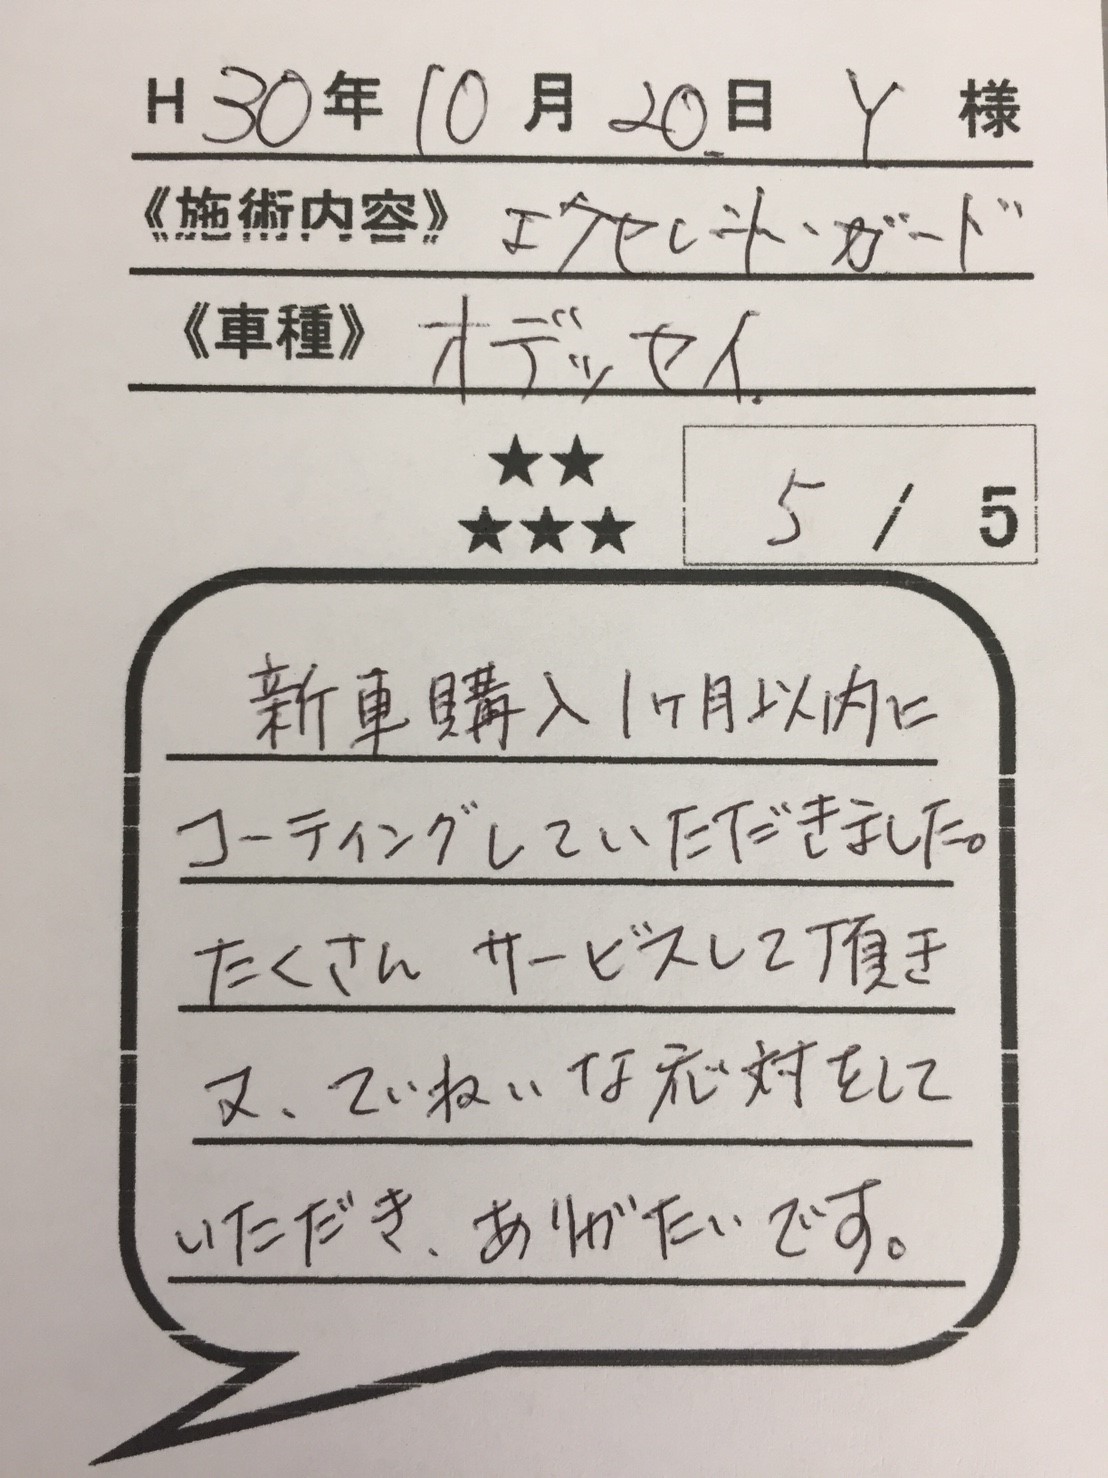 H 30年 10月 20日 Y 様
《施術内容》 エクセレント・ガード
《車種》 オデッセイ.
★★
★★★ 5 / 5
新車購入1ヶ月以内に
コーティングしていただきました。
たくさん サービスして頂き
又、ていねいな応対をして
いただき、ありがたいです。